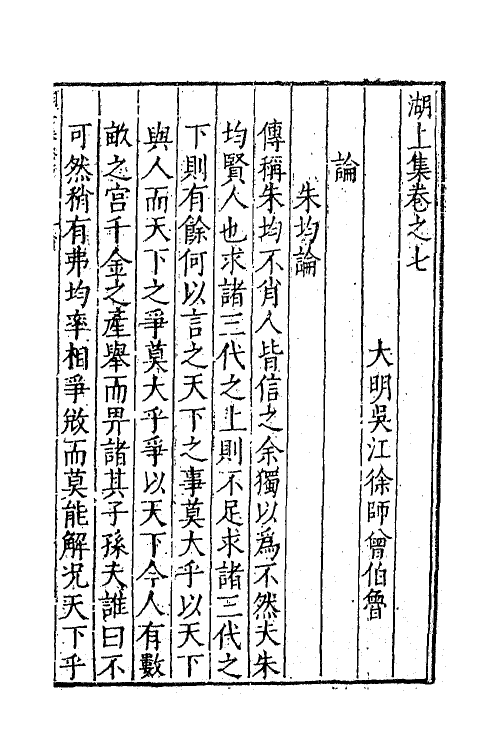 湖上集卷之七
大明吳江徐師曾伯魯
論
朱均論
傳稱朱均不肖人皆信之余獨以為不然夫朱
均賢人也求諸三代之上則不足求諸三代之
下則有餘何以言之天下之事莫大乎以天下
與人而天下之爭莫大乎爭以天下今人有數
畝之宫千金之產舉而畀諸其子孫夫誰曰不
可然稍有弗均率相爭敓而莫能解况天下乎